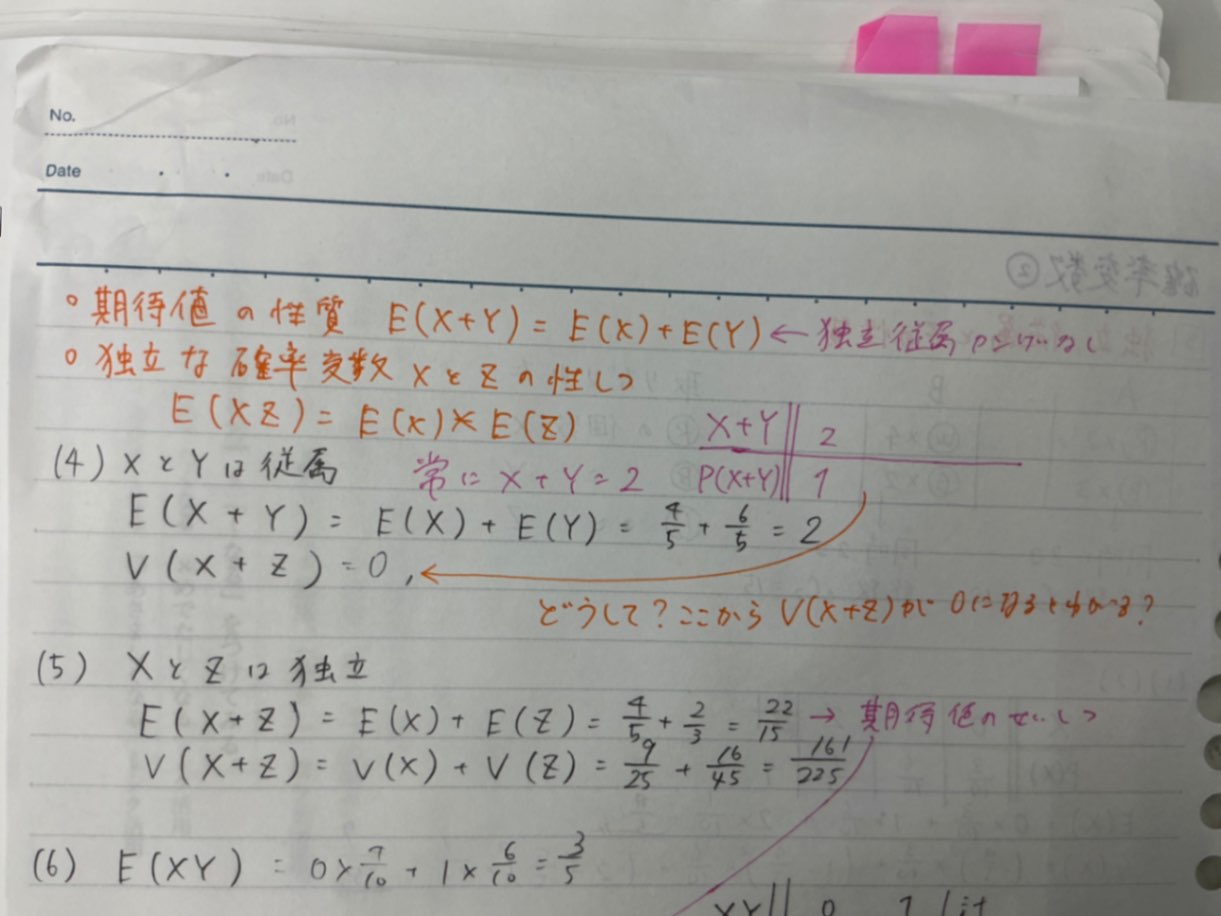 No.
Date
○ 期待値の性質 E(X+Y) = E(X)+E(Y) ← 独立従属
○ 独立な確率変数 XとZの性しつ
E(XZ) = E(X)×E(Z)
X+Y 2
(4) XとYは従属 常に X+Y=2 P(X+Y) 1
E(X+Y) = E(X)+E(Y) = 4/5 + 6/5 = 2
V(X+Z) = 0,
どうして?ここから V(X+Z)が 0になるとわかる?
(5) XとZは独立
E(X+Z) = E(X)+E(Z) = 4/5 + 2/3 = 22/15 → 期待値のせいしつ
V(X+Z) = V(X)+V(Z) = 9/25 + 16/45 = 161/225
(6) E(XY) = 0×7/10 + 1×6/10 = 3/5
XY 0 1 計